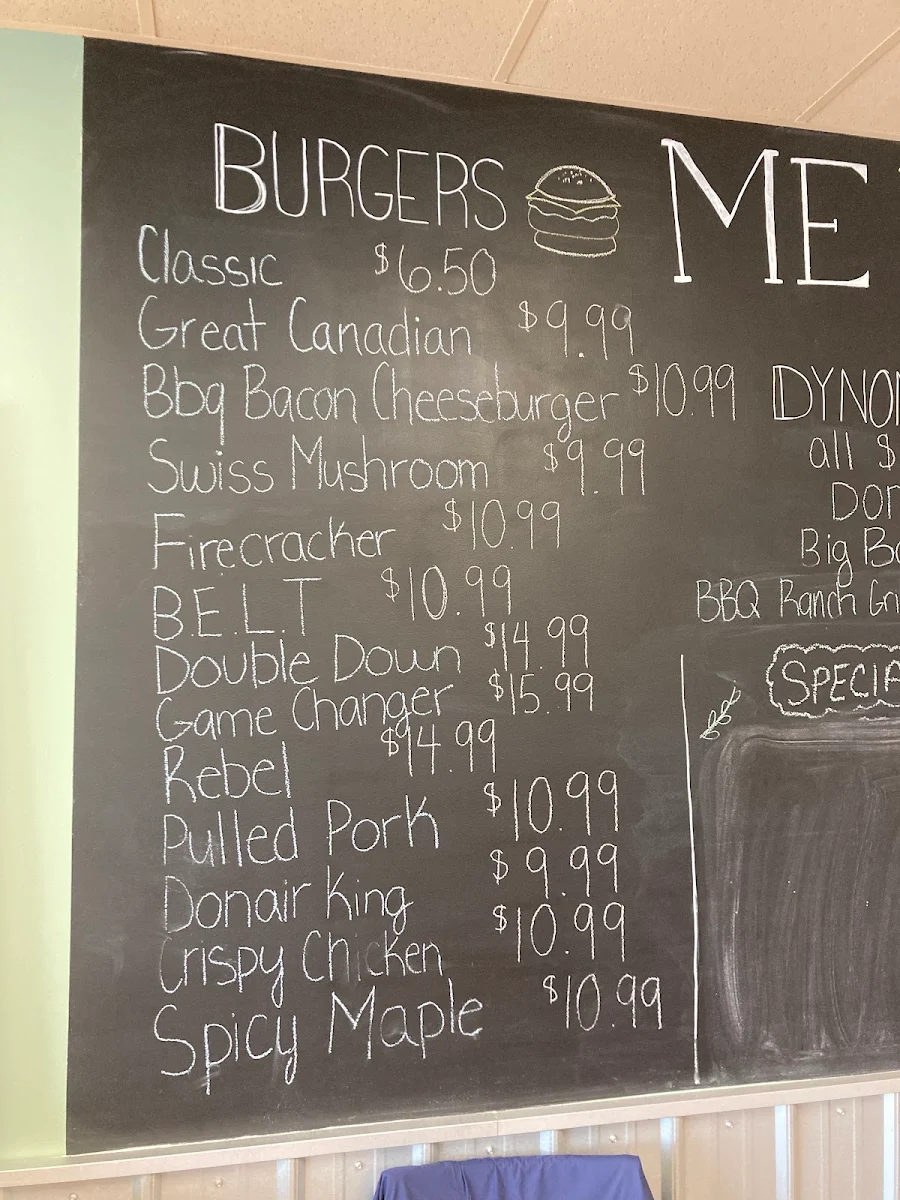 BURGERS
Classic $6.50
Great Canadian $9.99
Bbq Bacon Cheeseburger $10.99
Swiss Mushroom $9.99
Firecracker $10.99
B.E.L.T $10.99
Double Down $14.99
Game Changer $15.99
Rebel $14.99
Pulled Pork $10.99
Donair King $9.99
Crispy Chicken $10.99
Spicy Maple $10.99
ME
all $
Big
BBQ Ranch